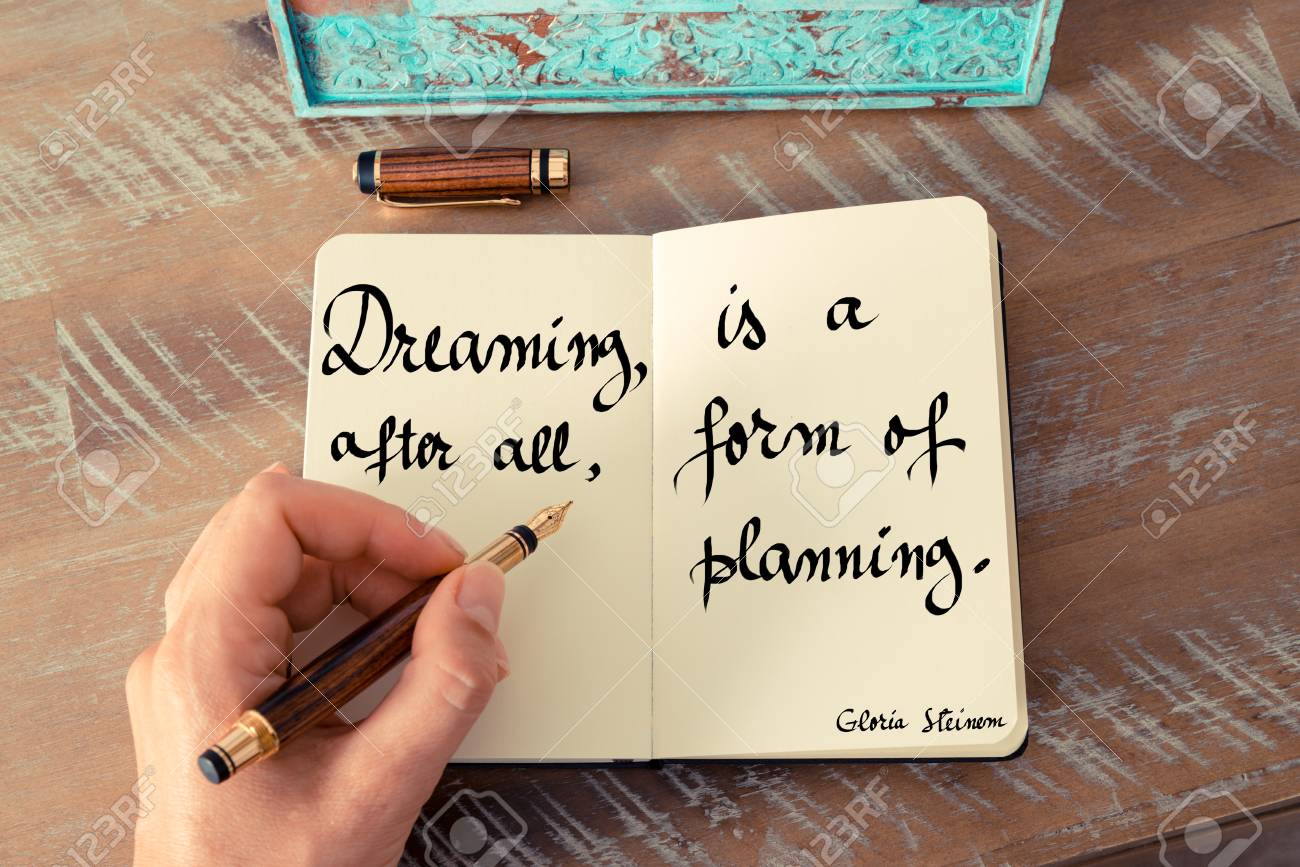 Dreaming,
after all,
is a
form of
planning.
Gloria Steinem
123RF
123RF
123RF
123RF
123RF
123RF
123RF
123RF
123RF